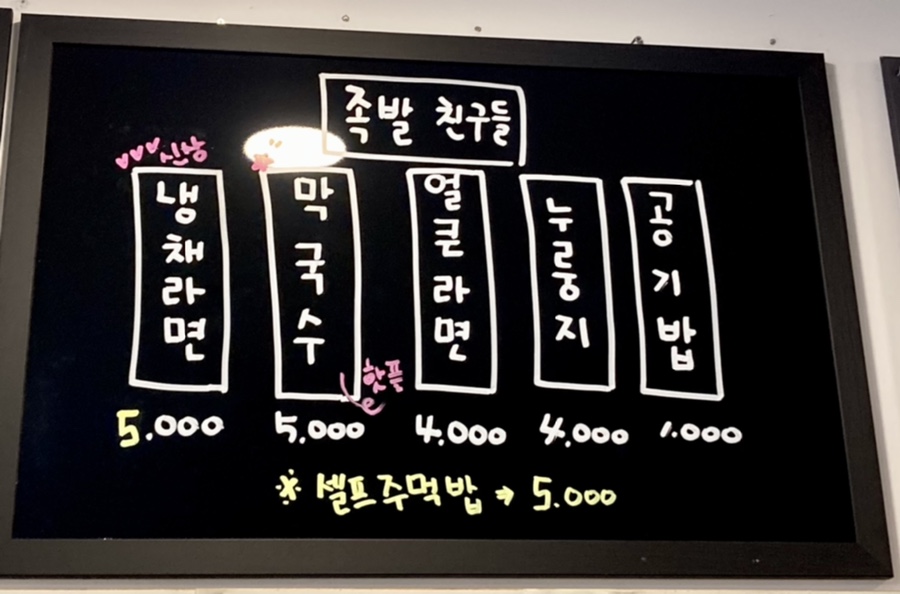 족발 친구들
♥♥♥ 신상
냉채라면
막국수
얼큰라면
누룽지
공기밥
핫플
5.000
5.000
4.000
4.000
1.000
※ 셀프주먹밥 → 5.000